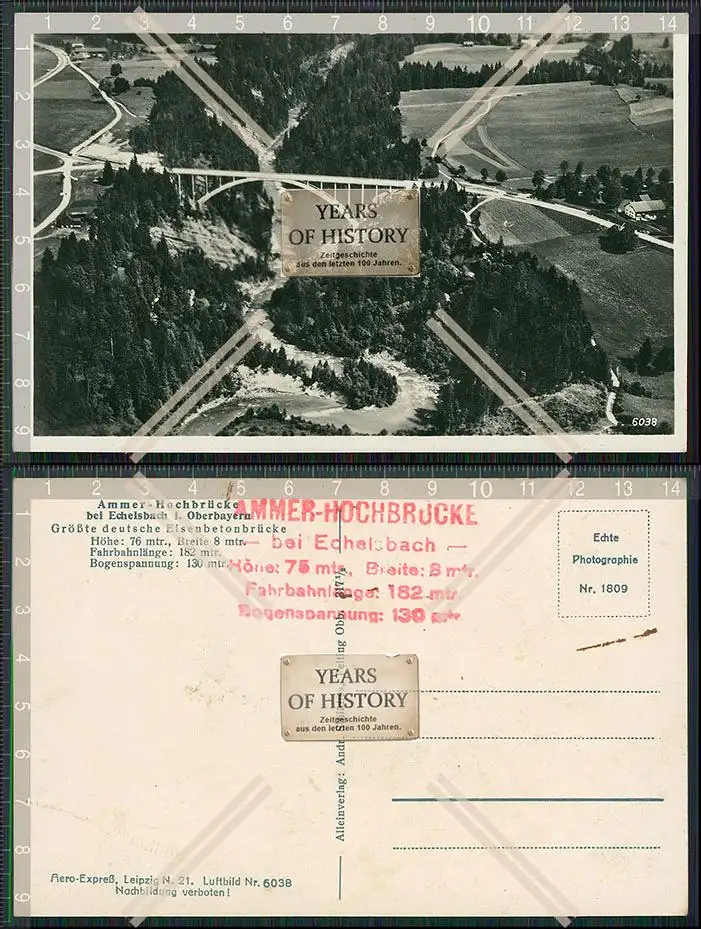 1 2 3 4 5 6 7 8 9 10 11 12 13 14
2
3
4
5
6
7
8
9
YEARS
OF HISTORY
Zeitgeschichte
aus den letzten 100 Jahren.
6038
1 2 3 4 5 6 7 8 9 10 11 12 13 14
2
3
4
5
6
7
8
9
Ammer-Hochbrücke
bei Echelsbach i. Oberbayern
Größte deutsche Eisenbetonbrücke
Höhe: 76 mtr., Breite 8 mtr.
Fahrbahnlänge: 182 mtr.
Bogenspannung: 130 mtr.
AMMER-HOCHBRÜCKE
— bei Echelsbach —
Höhe: 76 mtr., Breite: 8 mtr.
Fahrbahnlänge: 182 mtr.
Bogenspannung: 130 mtr.
Echte
Photographie
Nr. 1809
YEARS
OF HISTORY
Zeitgeschichte
aus den letzten 100 Jahren.
Alleinverlag: Obb.
Aero-Expreß, Leipzig N. 21. Luftbild Nr. 6038
Nachbildung verboten!